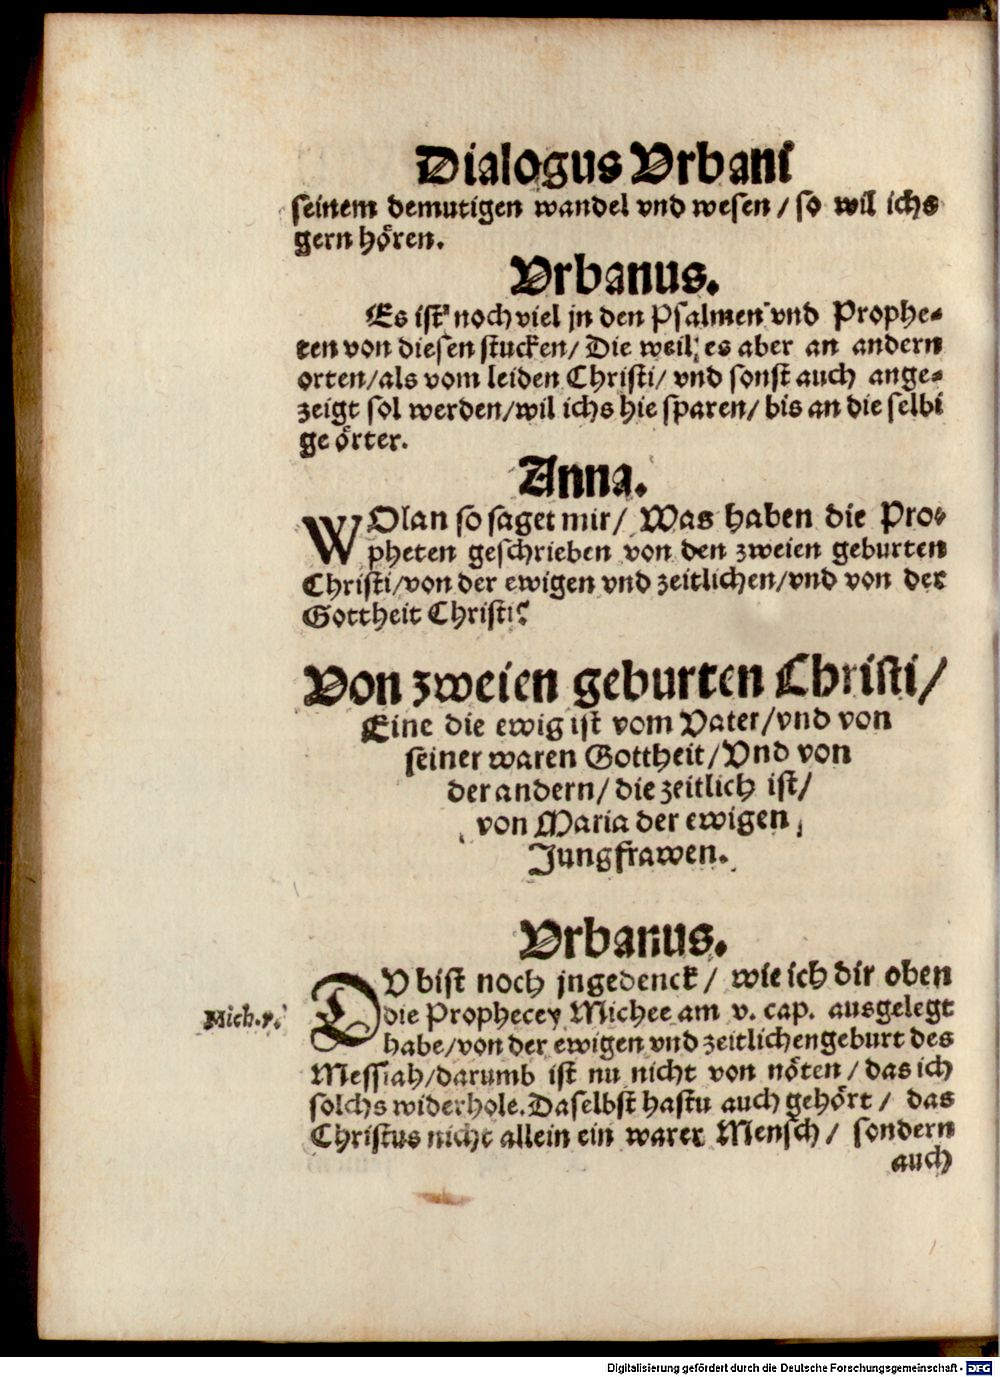 Dialogus Vrbani
seinem demutigen wandel vnd wesen / so wil ichs
gern hören.
Vrbanus.
Es ist noch viel jn den Psalmen vnd Prophe-
ten von diesen stucken / Die weil es aber an andern
orten / als vom leiden Christi / vnd sonst auch ange-
zeigt sol werden / wil ichs hie sparen / bis an die selbi
ge örter.
Anna.
WOlan so saget mir / Was haben die Pro-
pheten geschrieben von den zweien geburten
Christi / von der ewigen vnd zeitlichen / vnd von der
Gottheit Christi?
Von zweien geburten Christi /
Eine die ewig ist vom Vater / vnd von
seiner waren Gottheit / Vnd von
der andern / die zeitlich ist /
von Maria der ewigen
Jungfrawen.
Vrbanus.
DV bist noch jngedenck / wie ich dir oben
Mich. v. die Prophecey Michee am v. cap. ausgelegt
habe / von der ewigen vnd zeitlichen geburt des
Messiah / darumb ist nu nicht von nöten / das ich
solchs widerhole. Daselbst hastu auch gehört / das
Christus nicht allein ein warer Mensch / sondern
auch
Digitalisierung gefördert durch die Deutsche Forschungsgemeinschaft - DFG